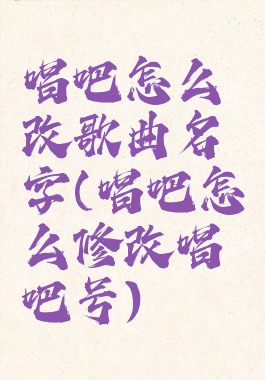 唱吧怎么
改歌曲名
字(唱吧怎
么修改唱
吧号)